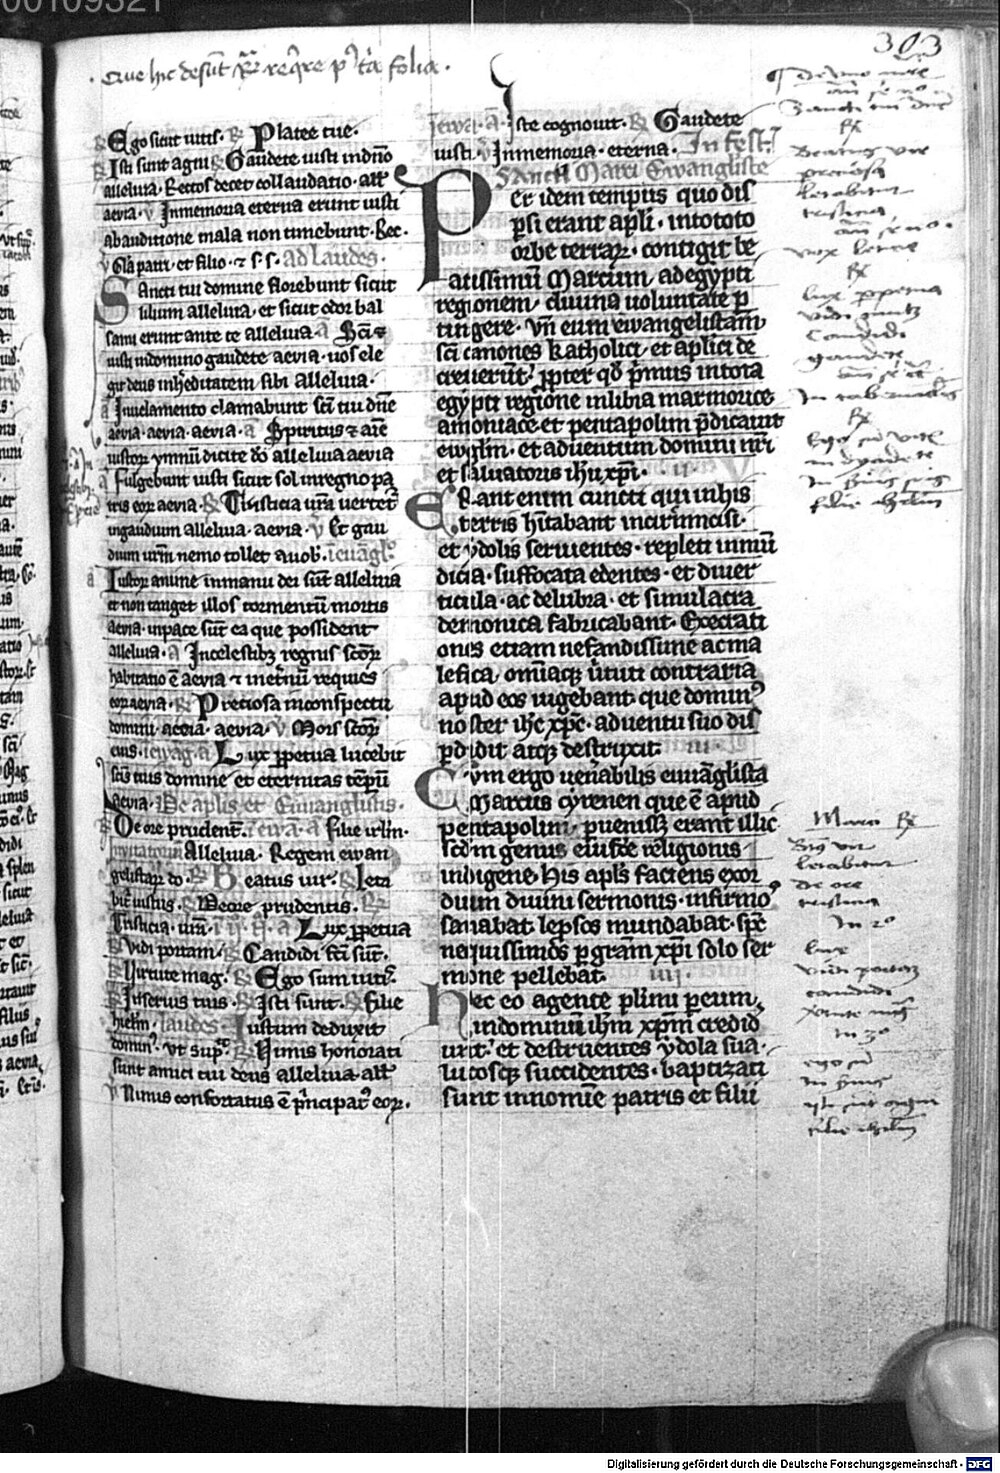 00109321
303
Que hic desunt require post tria folia.
Ego sicut uitis. Platee tue.
Isti sunt agni Gaudete iusti in dño
alleluia. Rectos decet collaudatio. all'
aeuia. Inmemoria eterna erunt iusti
abauditione mala non timebunt. Rec.
Gl̃a patri. et filio. ad laudes.
Sancti tui domine florebunt sicut
lilium alleluia. et sicut odor bal
sami erunt ante te alleluia
iusti indomino gaudete aeuia. uos ele
git deus in hereditatem sibi alleluia.
Inuelamento clamabunt sc̃i tui dñe
aeuia. aeuia. aeuia. Spiritus et aĩe
iustor ymnũ dicite dõ alleluia aeuia
Fulgebunt iusti sicut sol inregno pa
tris eor aeuia. Tristicia ur̃a uertet
ingaudium alleluia. aeuia. Et gau
dium ur̃m nemo tollet auob.
Iustor anime inmanu dei sũt alleluia
et non tanget illos tormentũ mortis
aeuia. inpace sũt ea que possident
alleluia. Incelestibz regnis sc̃or
habitatio ẽ aeuia et inetnũ requies
eor aeuia. Preciosa inconspectu
domini. aeuia. aeuia. Mors sc̃or
eius. Lux ppetua lucebit
sc̃is tuis domine et eternitas tẽpũ
aeuia. De aplis et Ewangelistis.
De ore prudent. filie irlm.
Inuitatorium Alleluia. Regem ewan
gelistar dõ. Beatus uir. Leta
bit iustus. De ore prudentis.
Tristicia. ur̃a. Lux ppetua
Vidi portam. Candidi fc̃i sũt.
Virtute mag. Ego sum uitis.
Inseruis tuis. Isti sunt. Filie
hierlm. laudes. Iustum deduxit
domin. vt sup. Nimis honorati
sunt amici tui deus alleluia. all'
Nimis confortatus ẽ principat eor.
Iste cognouit. Gaudete
iusti. Inmemoria. eterna. In Fest.
Sancti Marci Ewangliste
Per idem tempus quo dis
psi erant apl̃i. intototo
orbe terrar. contigit be
atissimũ Marcum, adegypti
regionem, diuina uoluntate p
tingere. Vñ eum ewangelistam
sc̃i canones Katholici. et aplici de
creuerũt. ppter qd primus intota
egypti regione inlibia marmorice
amoniace et pentapolim pdicauit
ewglm. et aduentum domini nr̃i
et saluatoris ihu xpi. ii.
Erant enim cuncti qui inhis
terris hitabant incircumcisi.
et ydolis seruientes. repleti inmũ
dicia. suffocata edentes. et diuer
ticula. ac delubra. et simulacra
demonica fabricabant. Execrati
onis etiam nefandissime ac ma
leficia, omiaq ututi contraria
apud eos uigebant. que domin
noster ihc xpc. aduentu suo dis
pdidit atq destruxit. iii.
Cum ergo uenabilis euuãglista
Marcus cyrenen que ẽ apud
pentapolim, puenissz erant illic
scdm genus eiusdẽ religionis
indigene. His apls faciens exor
dium diuini sermonis. infirmos
sanabat. leprosos mundabat. spc
nequissimos p gram xpi solo ser
mone pellebat. iiii.
Hec eo agente plimi p eum,
indominum ihm xpm credid
uit. et destruentes ydola sua.
lucosq succidentes. baptizati
sunt innomie patris et filii
Marco
Beatus vir
letabitur
de ore
tristicia
In 2º
lux
vidi portam
candidi
virtute mag
In 3º
ego sum
filie ihrlm
Digitalisierung gefördert durch die Deutsche Forschungsgemeinschaft - DFG